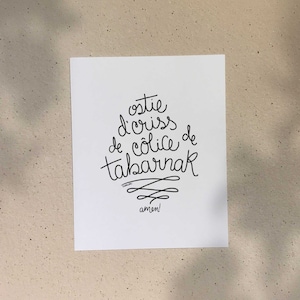 ostie
d'criss
de côlice de
tabarnak
amen!